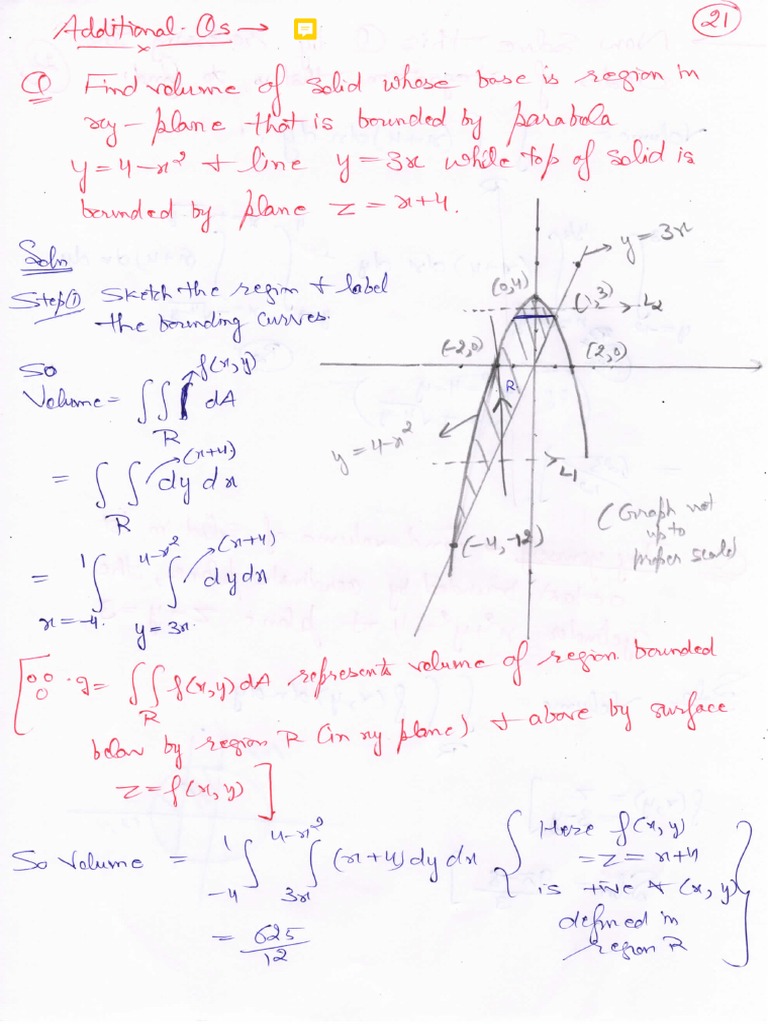 Additional. Qs →
21
Q Find volume of solid whose base is region in
xy-plane that is bounded by parabola
y = 4-x² + line y = 3x while top of solid is
bounded by plane z = x+4.
Soln
Step① Sketch the region + label
the bounding curves.
So
Volume = ∫∫_R f(x,y) dA
= ∫∫_R (x+4) dy dx
= ∫_{x=-4}^{1} ∫_{y=3x}^{4-x²} (x+4) dy dx
y = 3x
(0,4)
(1,3)
L2
(-2,0)
(2,0)
R
y = 4-x²
L1
(-4,-12)
(Graph not
up to
proper scale)
[∵ g = ∫∫_R f(x,y) dA represents volume of region bounded
below by region R (in xy plane) + above by surface
z = f(x,y)]
So Volume = ∫_{-4}^{1} ∫_{3x}^{4-x²} (x+4) dy dx
= 625/12
{Here f(x,y)
= z = x+4
is +ive ∀ (x,y)
defined in
region R}